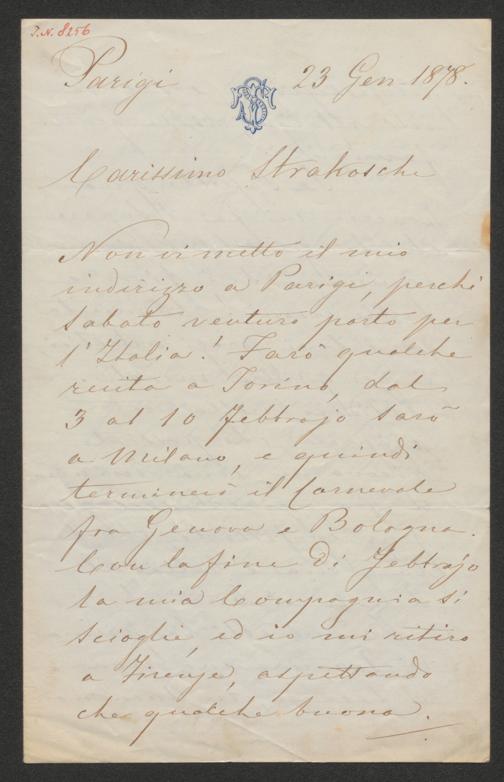 I.N. 8256
Parigi 23 Gen 1878.
Carissimo Strakosche
Non vi metto il mio
indirizzo a Parigi, perchè
sabato venturo parto per
l'Italia! Farò qualche
recita a Torino, dal
3 al 10 Febbrajo sarò
a Milano, e quindi
terminerò il Carnevale
fra Genova e Bologna.
Con la fine di Febbrajo
la mia Compagnia si
scioglie, ed io mi ritiro
a Firenze, aspettando
che qualche buona.